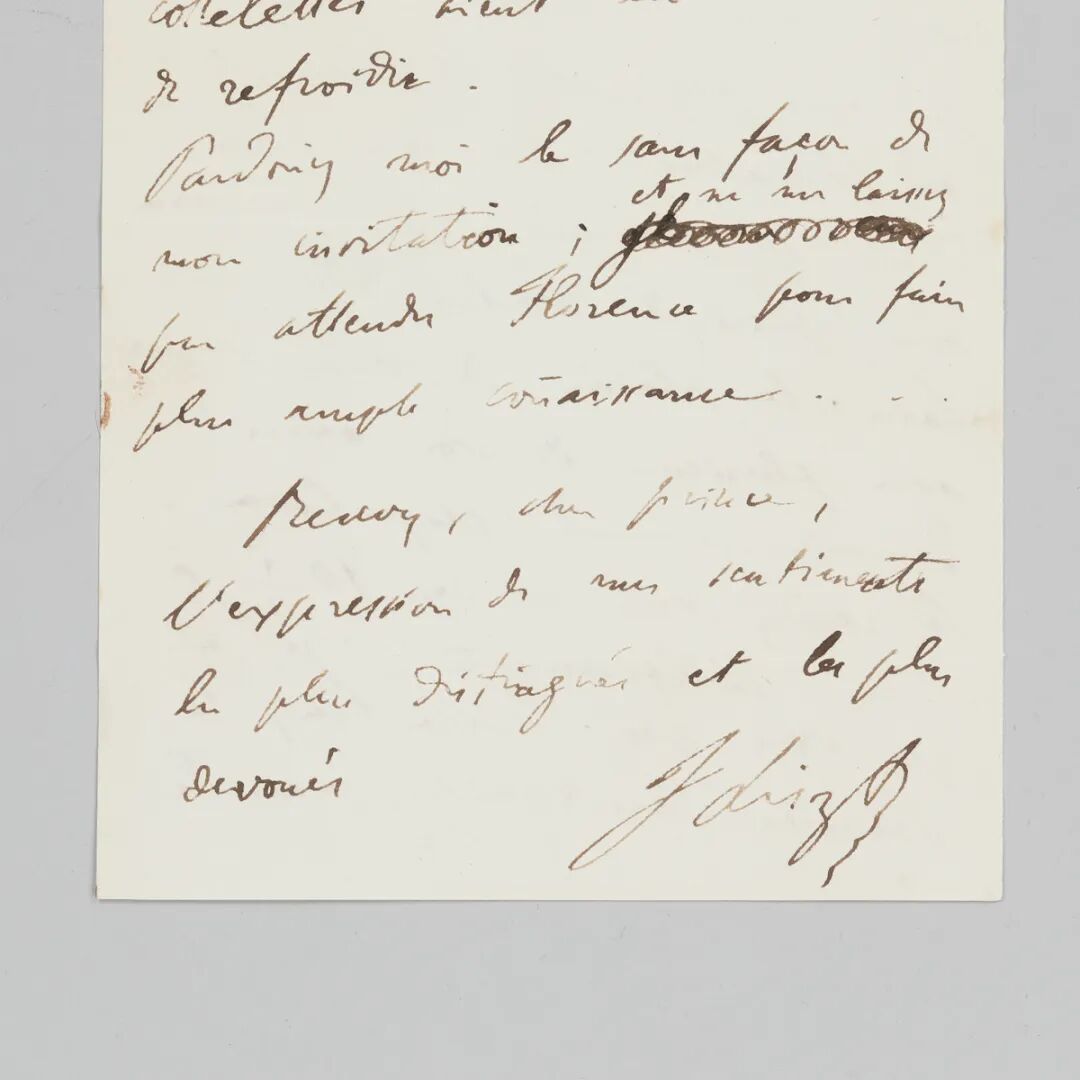 cottelettes vient
de refroidir.
Pardonnez moi le sans façon de
et ne me laissez
mon invitation ;
pas attendre Florence pour faire
plus ample coñaissance . . .
Recevez, cher prince,
l'expression de mes sentiments
les plus distingués et les plus
devoués
F Liszt